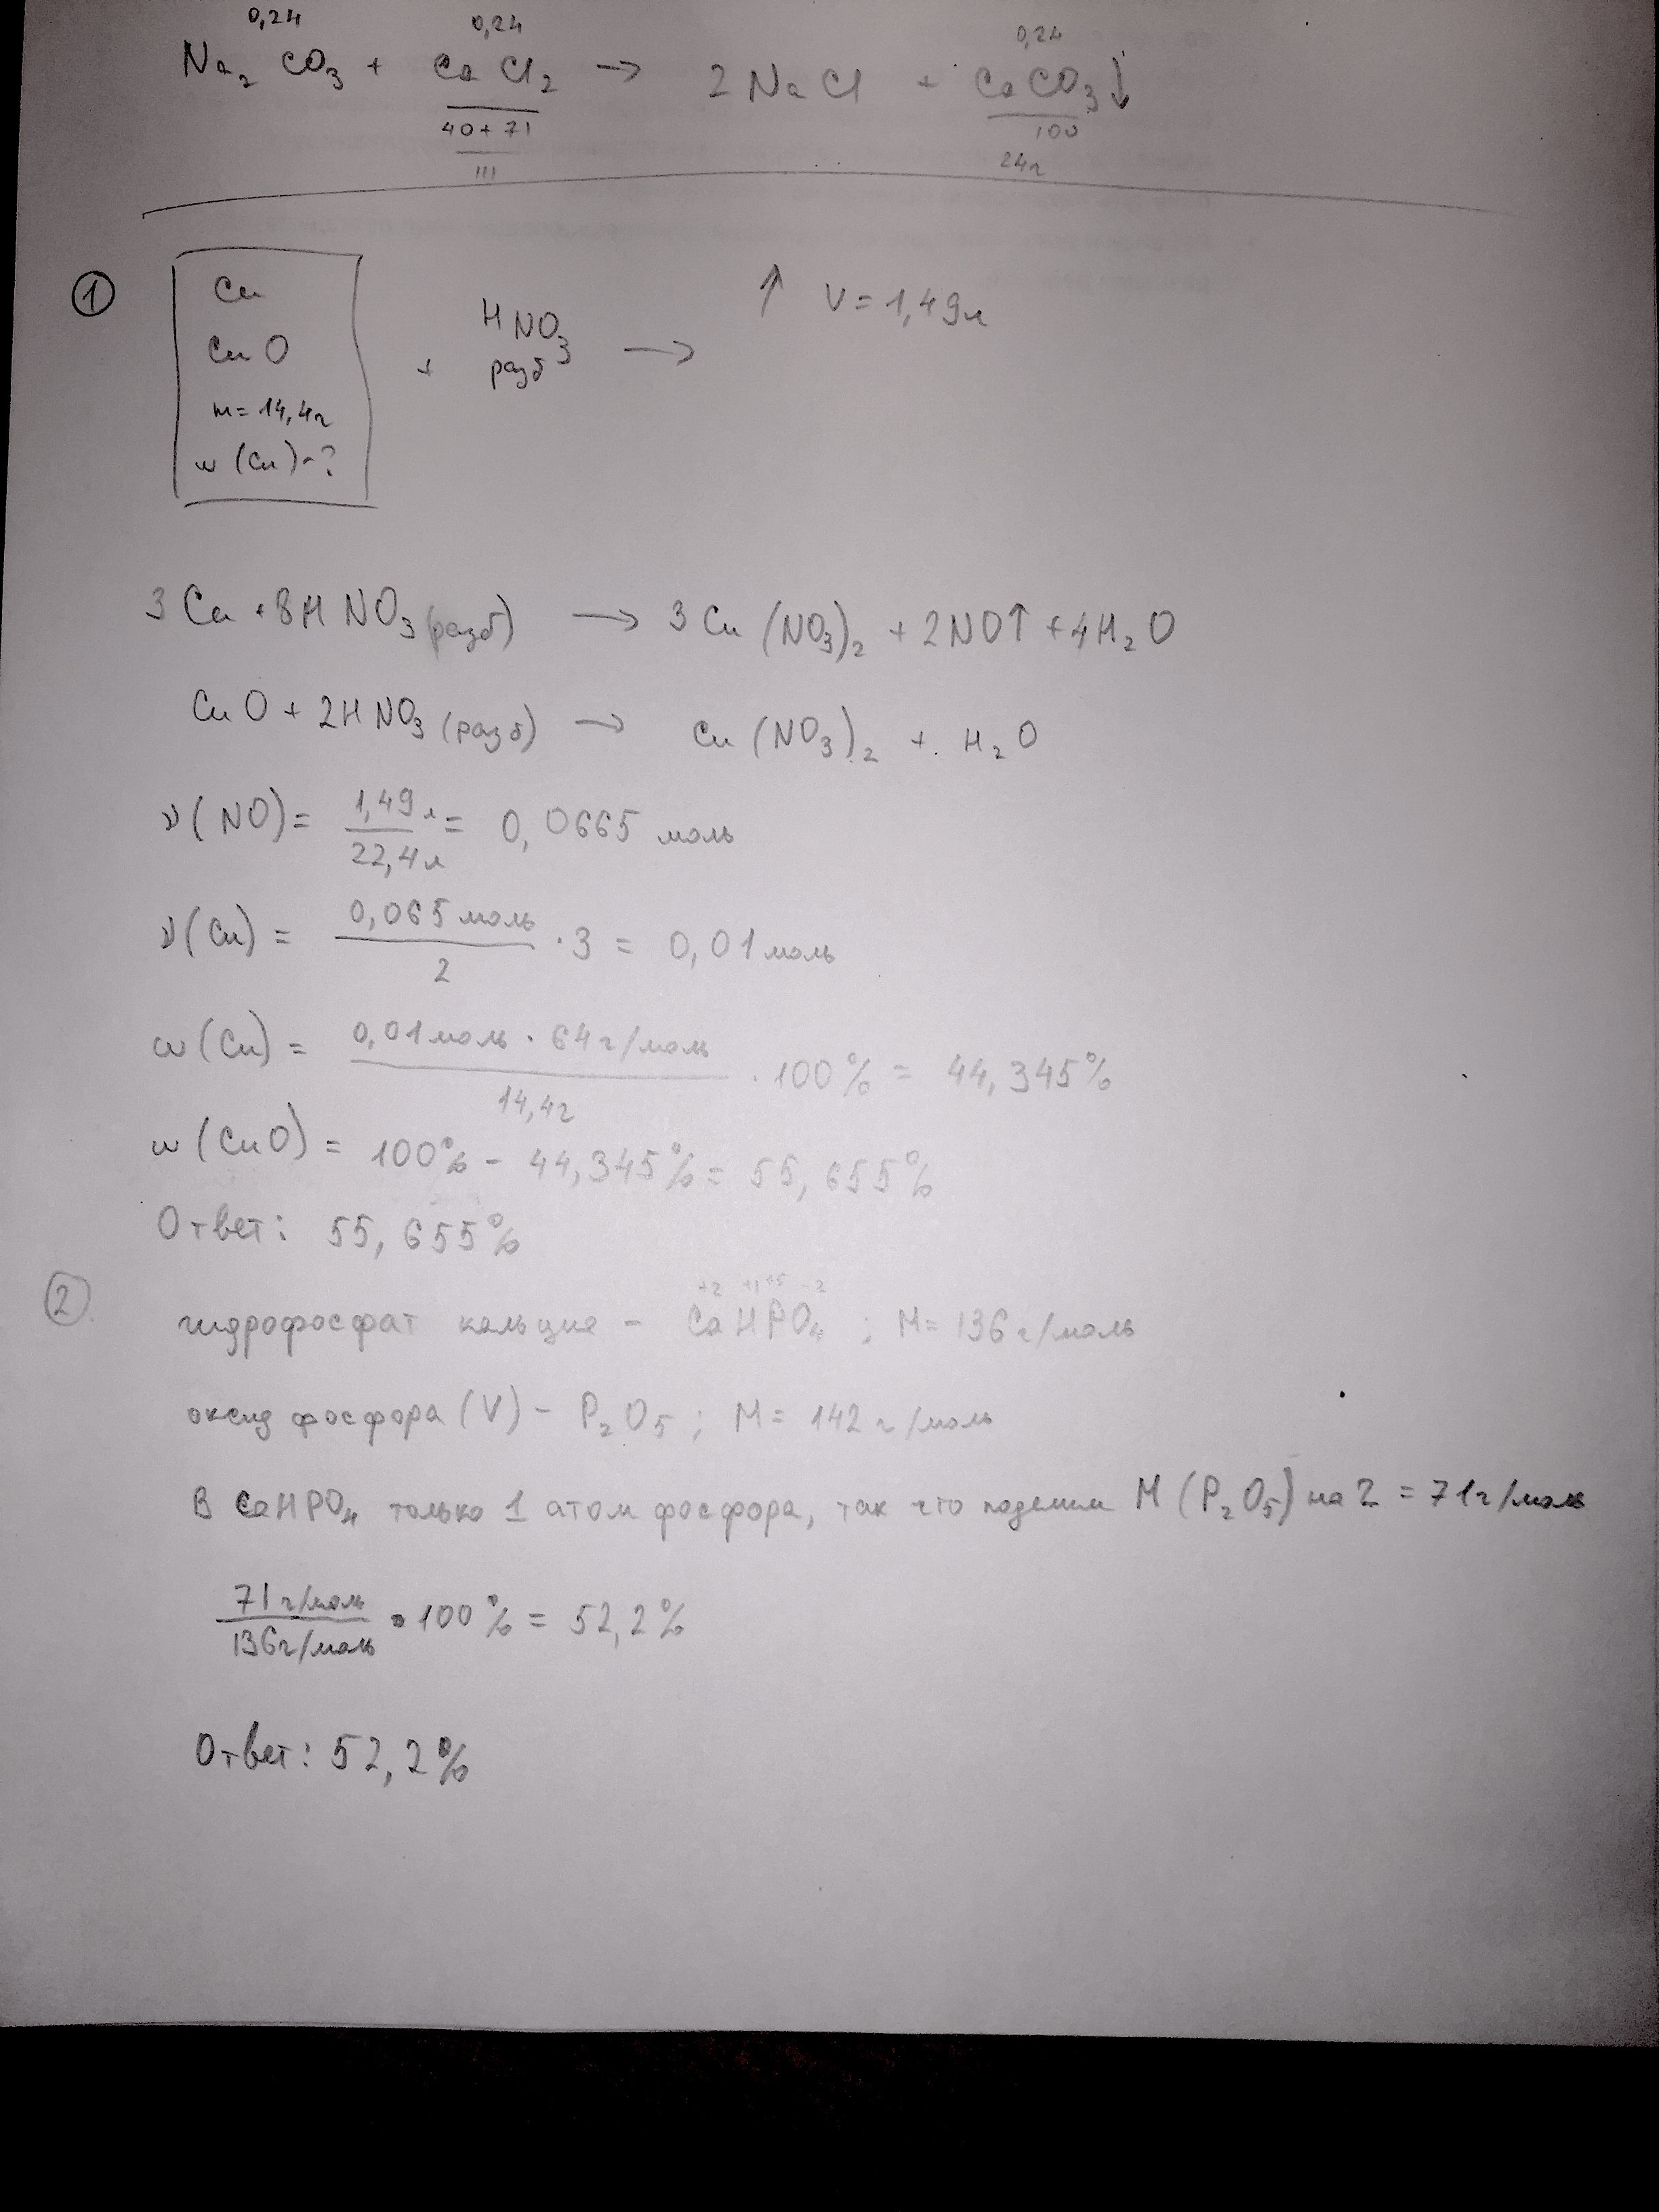 0,24 0,24 0,24
Na₂CO₃ + CaCl₂ → 2NaCl + CaCO₃↓
40+71 100
111 24г
① Cu
CuO
m = 14,4г
w (Cu) - ?
+ HNO₃ →
разб
↑ V = 1,49л
3Cu + 8HNO₃(разб) → 3Cu(NO₃)₂ + 2NO↑ + 4H₂O
CuO + 2HNO₃(разб) → Cu(NO₃)₂ + H₂O
ν(NO) = 1,49л / 22,4л = 0,0665 моль
ν(Cu) = 0,065 моль / 2 · 3 = 0,01 моль
w(Cu) = 0,01 моль · 64 г/моль / 14,4г · 100% = 44,345%
w(CuO) = 100% - 44,345% = 55,655%
Ответ: 55,655%
+2 +1 +5 -2
② гидрофосфат кальция - CaHPO₄ ; M = 136 г/моль
оксид фосфора (V) - P₂O₅ ; M = 142 г/моль
В CaHPO₄ только 1 атом фосфора, так что поделим M(P₂O₅) на 2 = 71г/моль
71 г/моль / 136г/моль · 100% = 52,2%
Ответ: 52,2%